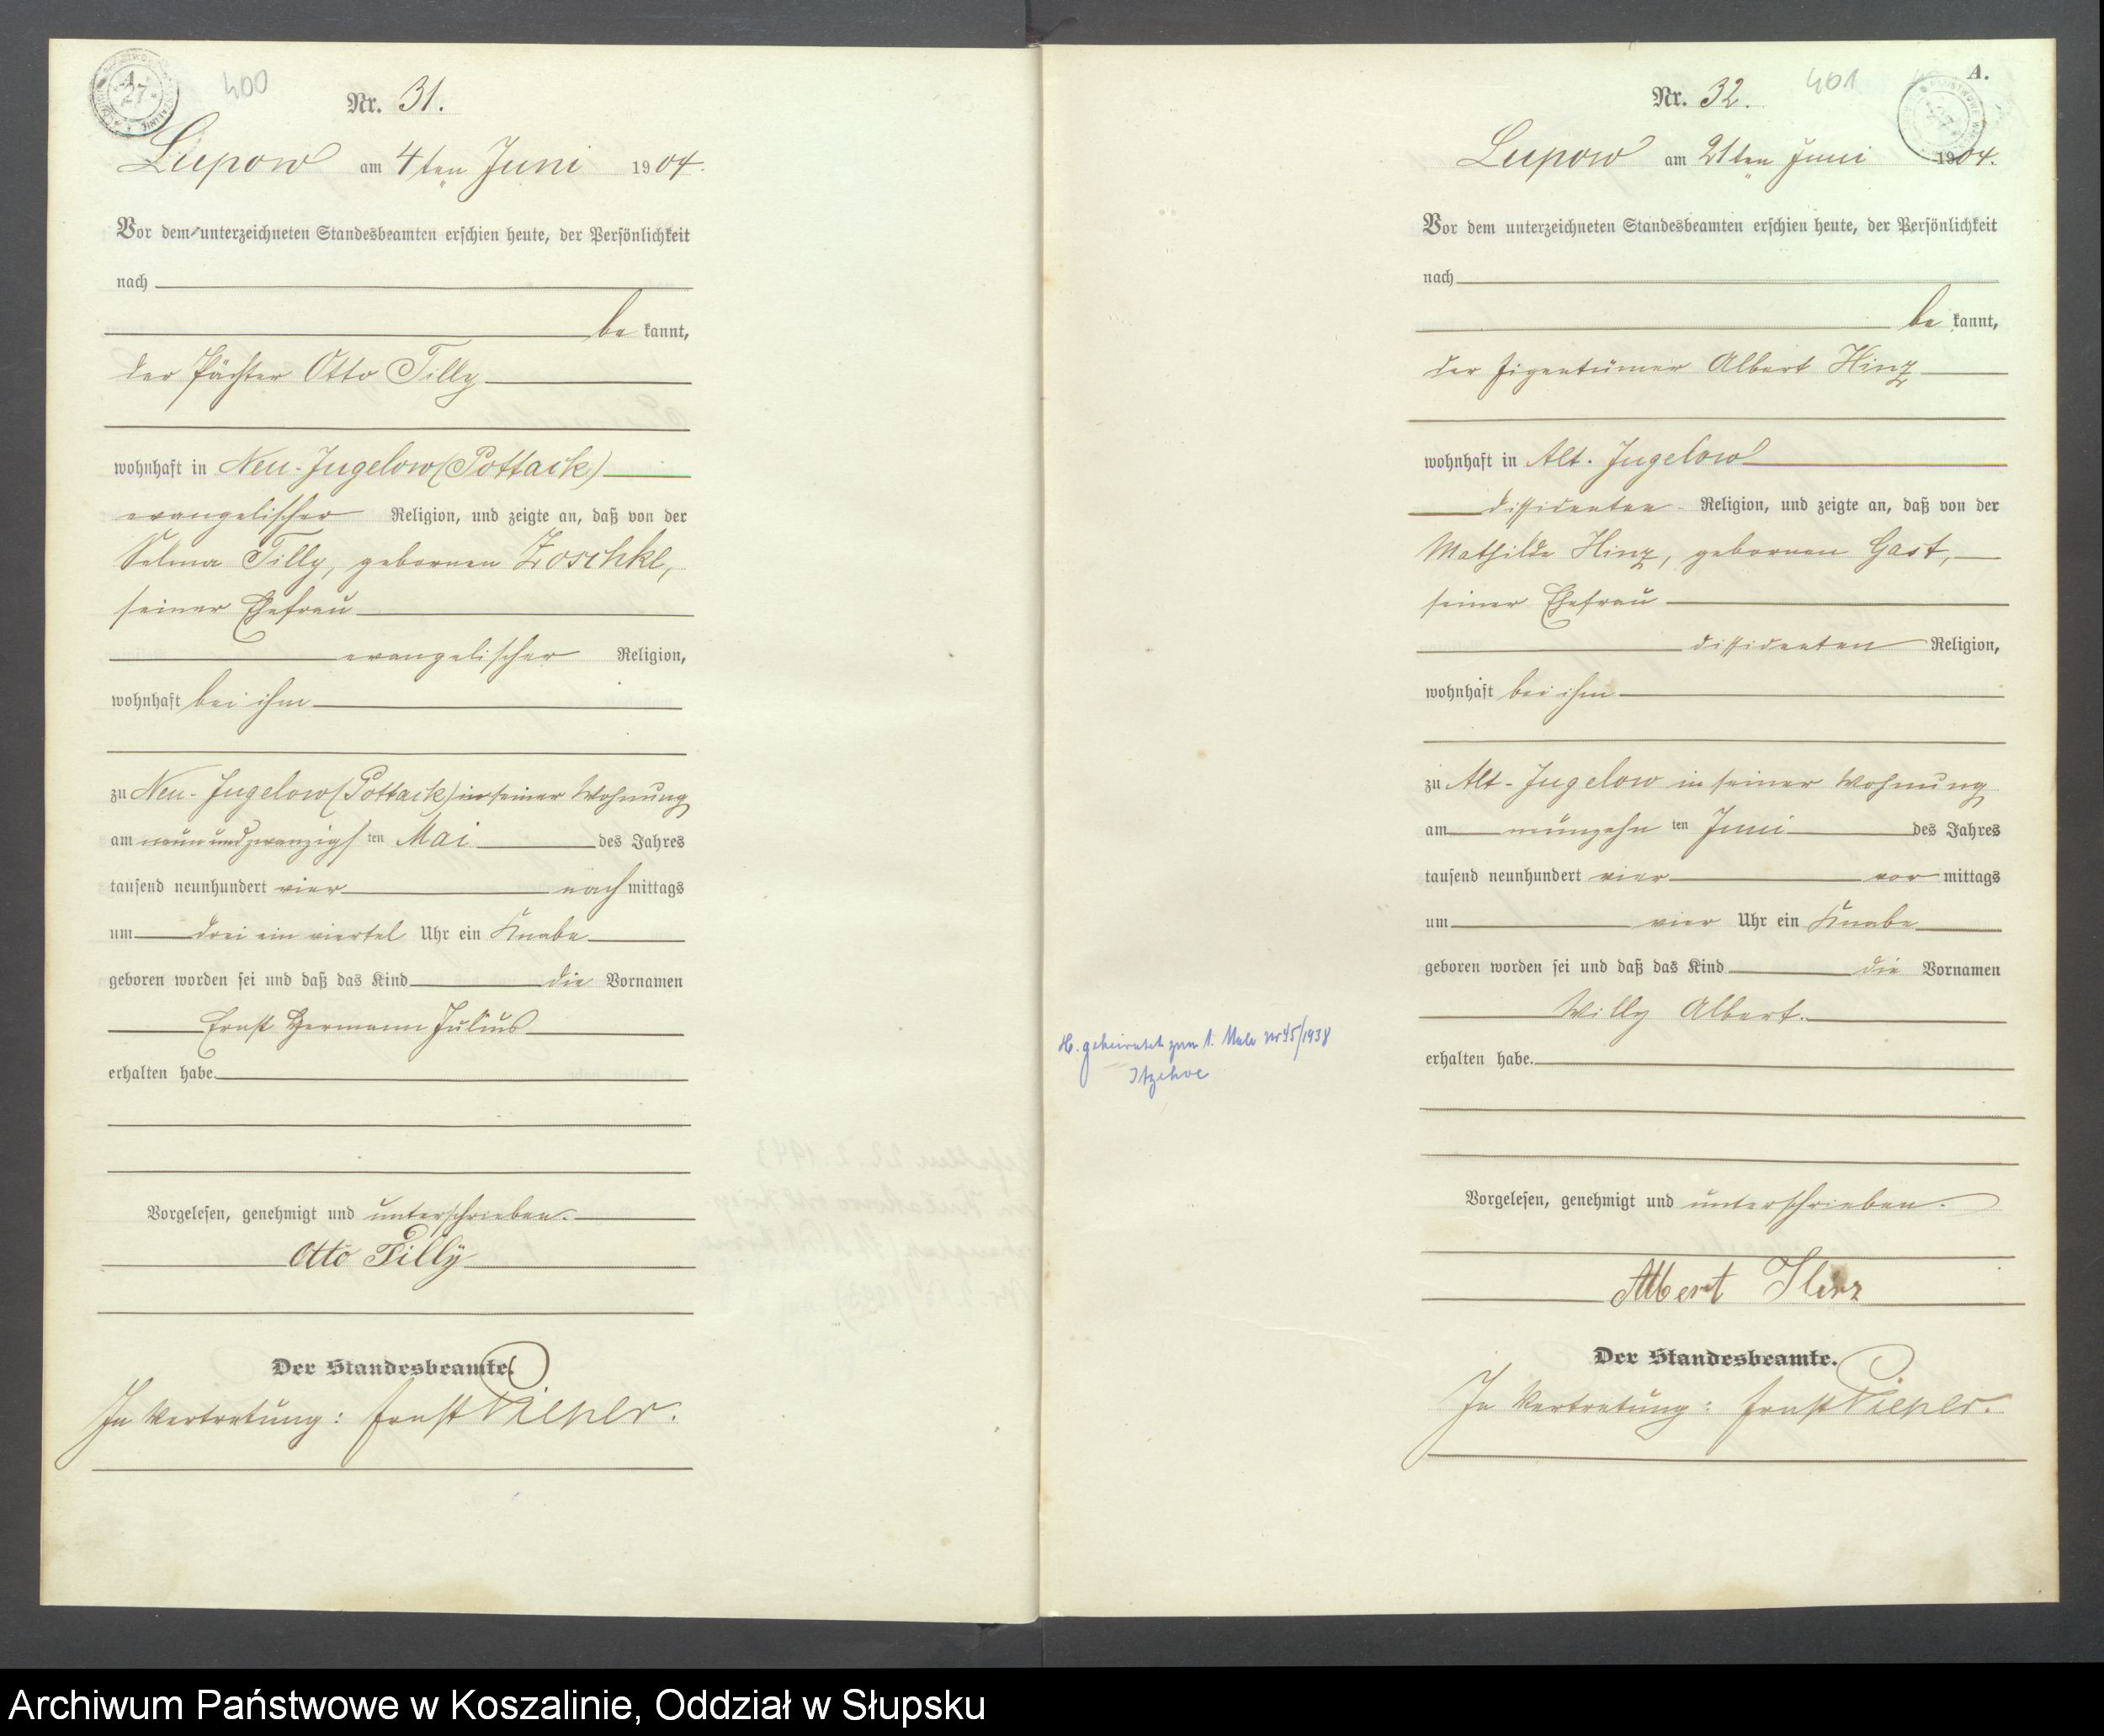 400
Nr. 31.
Lupow am 4ten Juni 1904.
Vor dem unterzeichneten Standesbeamten erschien heute, der Persönlichkeit
nach
be kannt,
der Pächter Otto Tilly
wohnhaft in Neu-Jugelow (Pottack)
evangelischer Religion, und zeigte an, daß von der
Selma Tilly, gebornen Zoschke,
seiner Ehefrau
evangelischer Religion,
wohnhaft bei ihm
zu Neu-Jugelow (Pottack) in seiner Wohnung
am neun und zwanzigsten Mai des Jahres
tausend neunhundert vier nach mittags
um drei ein viertel Uhr ein Knabe
geboren worden sei und daß das Kind die Vornamen
Ernst Hermann Julius
erhalten habe.
Vorgelesen, genehmigt und unterschrieben.
Otto Tilly
Der Standesbeamte.
In Vertretung: Ernst Pieper.
A.
401
Nr. 32.
Lupow am 21ten Juni 1904.
Vor dem unterzeichneten Standesbeamten erschien heute, der Persönlichkeit
nach
be kannt,
der Eigentümer Albert Hinz
wohnhaft in Alt-Jugelow
dissidenten Religion, und zeigte an, daß von der
Mathilde Hinz, gebornen Gast,
seiner Ehefrau
dissidenten Religion,
wohnhaft bei ihm
zu Alt-Jugelow in seiner Wohnung
am neunzehn ten Juni des Jahres
tausend neunhundert vier vor mittags
um vier Uhr ein Knabe
geboren worden sei und daß das Kind die Vornamen
Willy Albert.
erhalten habe.
H. geheiratet zum 1. Male Nr 45/1938
Itzehoe
Vorgelesen, genehmigt und unterschrieben.
Albert Hinz
Der Standesbeamte.
In Vertretung: Ernst Pieper.
Archiwum Państwowe w Koszalinie, Oddział w Słupsku